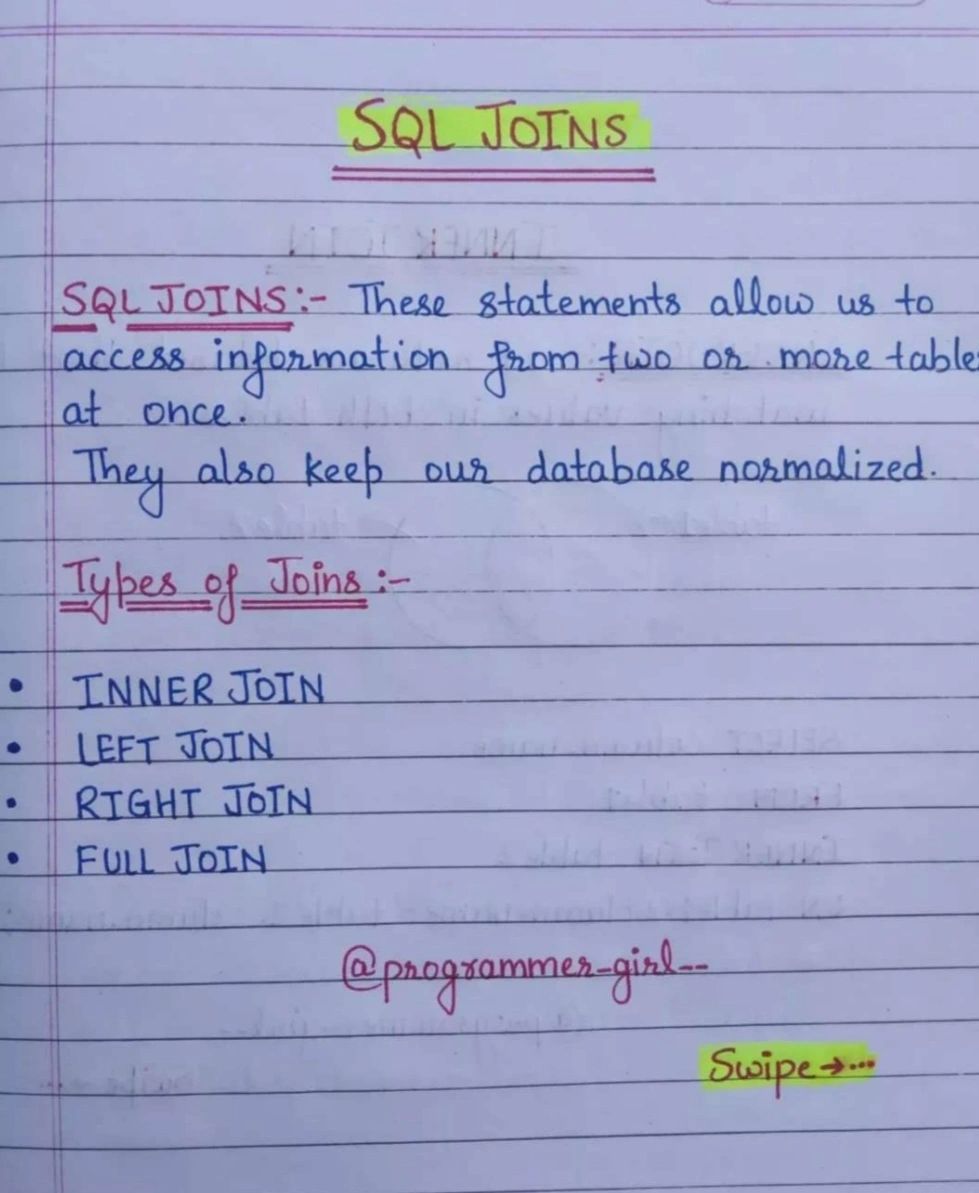 SQL JOINS
SQL JOINS:- These statements allow us to
access information from two or more table
at once.
They also keep our database normalized.
Types of Joins :-
• INNER JOIN
• LEFT JOIN
• RIGHT JOIN
• FULL JOIN
@programmer-girl--
Swipe→...